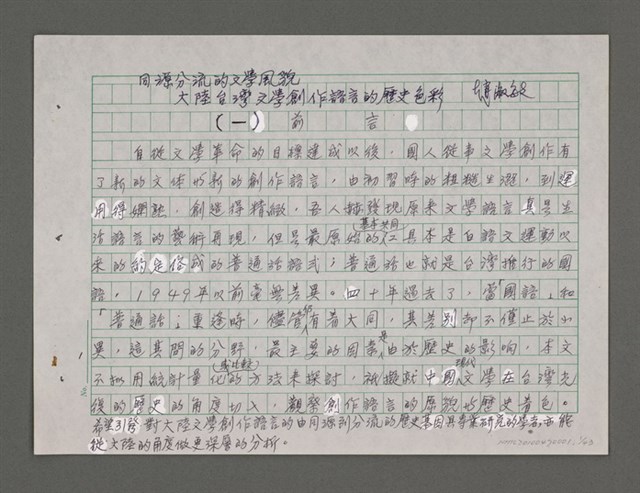 同源分流的文學風貌
大陸台灣文學創作語言的歷史色彩　傅淑敏
(一) 前言
自從文學革命的目標達成以後，國人從事文學創作有
了新的文体的新的創作語言，由初習時的粗糙生澀，到運
用得嫻熟，創造得精緻，吾人發現原來文學語言其是生
基本共同
活語言的藝術再現，但是最原始的本是白話文運動以
來的約定俗成的普通話語式；普通話也就是台灣推行的國
語，1949年以前毫無差異。四十年過去了，當「國語」和
「普通話」重逢時，儘管有着大同，其差別卻不僅止於小
異，這其間的分野，最主要的因素是由於歷史的影響，本文
或比較
現代
不擬用統計量化的方法來探討，祇擬就中國文學在台灣先
後的歷史的角度切入，觀察創作語言的原貌的歷史着色。
希望引發對大陸文學創作語言的由同源到分流的歷史基因具專業研究的學者，亦能
從大陸的角度做更深層的分析。